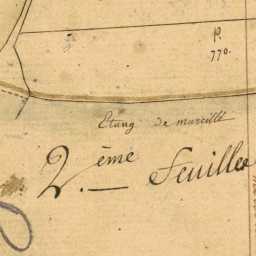 p.
770.
Etang de marcillé
2.ème Feuille